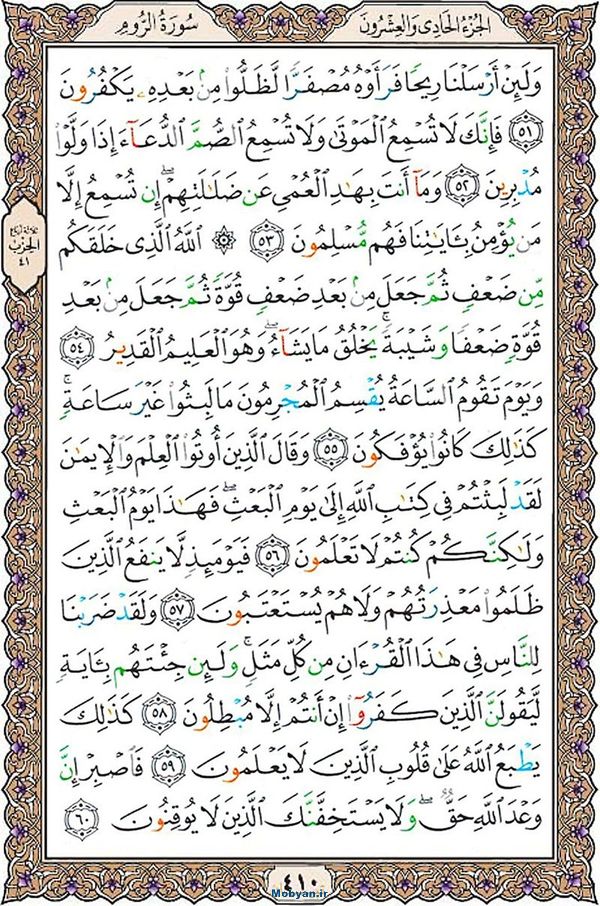 الجُزءُ الحَادِى وَالعِشرُونَ
سُورَةُ الرُّومِ
وَلَئِنْ أَرْسَلْنَا رِيحًا فَرَأَوْهُ مُصْفَرًّا لَّظَلُّوا۟ مِنۢ بَعْدِهِۦ يَكْفُرُونَ
﴿٥١﴾ فَإِنَّكَ لَا تُسْمِعُ الْمَوْتَىٰ وَلَا تُسْمِعُ الصُّمَّ الدُّعَآءَ إِذَا وَلَّوْا۟
مُدْبِرِينَ ﴿٥٢﴾ وَمَآ أَنتَ بِهَٰدِ الْعُمْىِ عَن ضَلَٰلَتِهِمْ ۖ إِن تُسْمِعُ إِلَّا
مَن يُؤْمِنُ بِـَٔايَٰتِنَا فَهُم مُّسْلِمُونَ ﴿٥٣﴾ ۞ اللَّهُ الَّذِى خَلَقَكُم
مِّن ضَعْفٍ ثُمَّ جَعَلَ مِنۢ بَعْدِ ضَعْفٍ قُوَّةً ثُمَّ جَعَلَ مِنۢ بَعْدِ
قُوَّةٍ ضَعْفًا وَشَيْبَةً ۚ يَخْلُقُ مَا يَشَآءُ ۖ وَهُوَ الْعَلِيمُ الْقَدِيرُ ﴿٥٤﴾
وَيَوْمَ تَقُومُ السَّاعَةُ يُقْسِمُ الْمُجْرِمُونَ مَا لَبِثُوا۟ غَيْرَ سَاعَةٍ ۚ
كَذَٰلِكَ كَانُوا۟ يُؤْفَكُونَ ﴿٥٥﴾ وَقَالَ الَّذِينَ أُوتُوا۟ الْعِلْمَ وَالْإِيمَٰنَ
لَقَدْ لَبِثْتُمْ فِى كِتَٰبِ اللَّهِ إِلَىٰ يَوْمِ الْبَعْثِ ۖ فَهَٰذَا يَوْمُ الْبَعْثِ
وَلَٰكِنَّكُمْ كُنتُمْ لَا تَعْلَمُونَ ﴿٥٦﴾ فَيَوْمَئِذٍ لَّا يَنفَعُ الَّذِينَ
ظَلَمُوا۟ مَعْذِرَتُهُمْ وَلَا هُمْ يُسْتَعْتَبُونَ ﴿٥٧﴾ وَلَقَدْ ضَرَبْنَا
لِلنَّاسِ فِى هَٰذَا الْقُرْءَانِ مِن كُلِّ مَثَلٍ ۚ وَلَئِن جِئْتَهُم بِـَٔايَةٍ
لَّيَقُولَنَّ الَّذِينَ كَفَرُوٓا۟ إِنْ أَنتُمْ إِلَّا مُبْطِلُونَ ﴿٥٨﴾ كَذَٰلِكَ
يَطْبَعُ اللَّهُ عَلَىٰ قُلُوبِ الَّذِينَ لَا يَعْلَمُونَ ﴿٥٩﴾ فَاصْبِرْ إِنَّ
وَعْدَ اللَّهِ حَقٌّ ۖ وَلَا يَسْتَخِفَّنَّكَ الَّذِينَ لَا يُوقِنُونَ ﴿٦٠﴾
الحِزب
٤١
٤١٠
Mobyan.ir